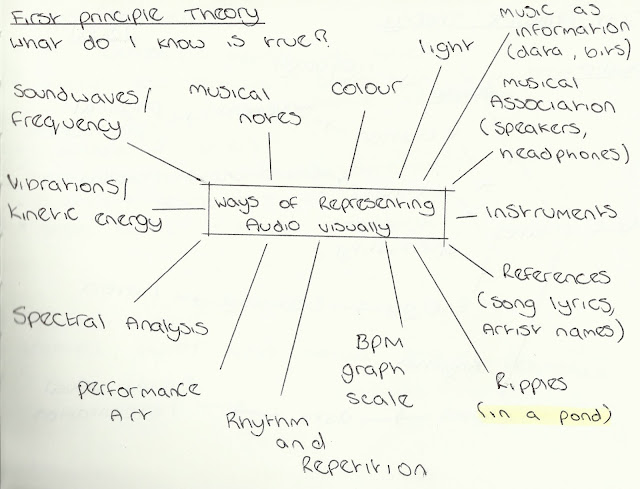 First principle Theory
What do I know is true?
Soundwaves/
frequency
musical
notes
colour
light
music as
information
(data, bits)
musical
Association
(speakers,
headphones)
Vibrations/
Kinetic energy
Ways of Representing
Audio visually
Instruments
References
(song lyrics,
Artist names)
Spectral Analysis
performance
Art
Rhythm
and
Repetition
BPM
graph
scale
Ripples
(in a pond)